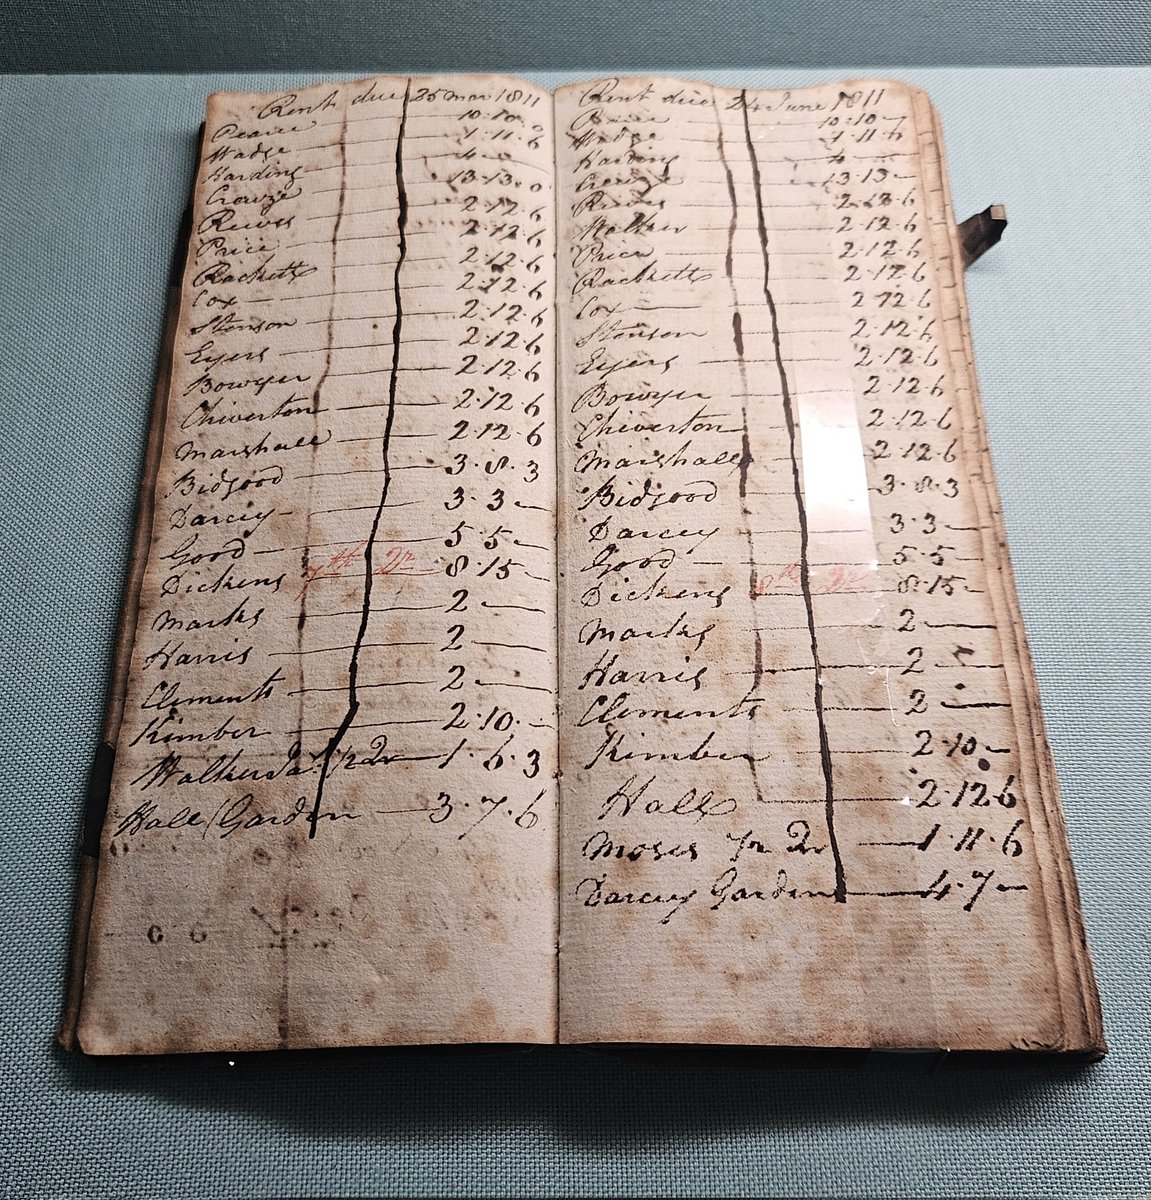 Rent due 25 Mar 1811
Pearce 10.10.0
Wadge 1.11.6
Harding 4
Crowze 13.13.0
Reeves 2.12.6
Price 2.12.6
Rackett 2.12.6
Cox 2.12.6
Stenson 2.12.6
Eyers 2.12.6
Bowyer 2.12.6
Chiverton 2.12.6
Marshall 2.12.6
Bidgood 3.8.3
Darcey 3.3
Good 5.5
Dickens 7th Qr 8.15
Marks 2
Harris 2
Clements 2
Kimber 2.10
Walker 1/2 Qr 1.6.3
Hall Garden 3.7.6
Rent due 24 June 1811
10.10
Wadge 1.11.6
Harding 4
Crowze 13.13
Reeves 2.12.6
Walker 2.12.6
Price 2.12.6
Rackett 2.12.6
Cox 2.12.6
Stenson 2.12.6
Eyers 2.12.6
Bowyer 2.12.6
Chiverton 2.12.6
Marshall 2.12.6
Bidgood 3.8.3
Darcey 3.3
Good 5.5
Dickens 8th Qr 8.15
Marks 2
Harris 2
Clements 2
Kimber 2.10
Hall 2.12.6
Moses Qr 1.11.6
Darcey Garden 4.7